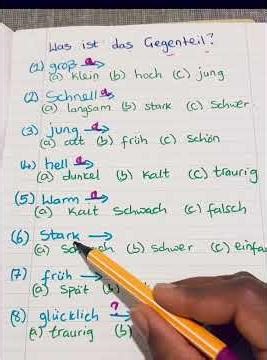 Was ist das Gegenteil?
(1) groß a
(a) klein (b) hoch (c) jung
(2) Schnell a
(a) langsam (b) stark (c) schwer
(3) jung a
(a) alt (b) früh (c) schön
(4) hell a
(a) dunkel (b) kalt (c) traurig
(5) Warm a
(a) kalt schwach (c) falsch
(6) Stark →
(a) (b) schwer (c) einfa
(7) früh →
(a) spät (b)
(8) glücklich ? →
(a) traurig (b)